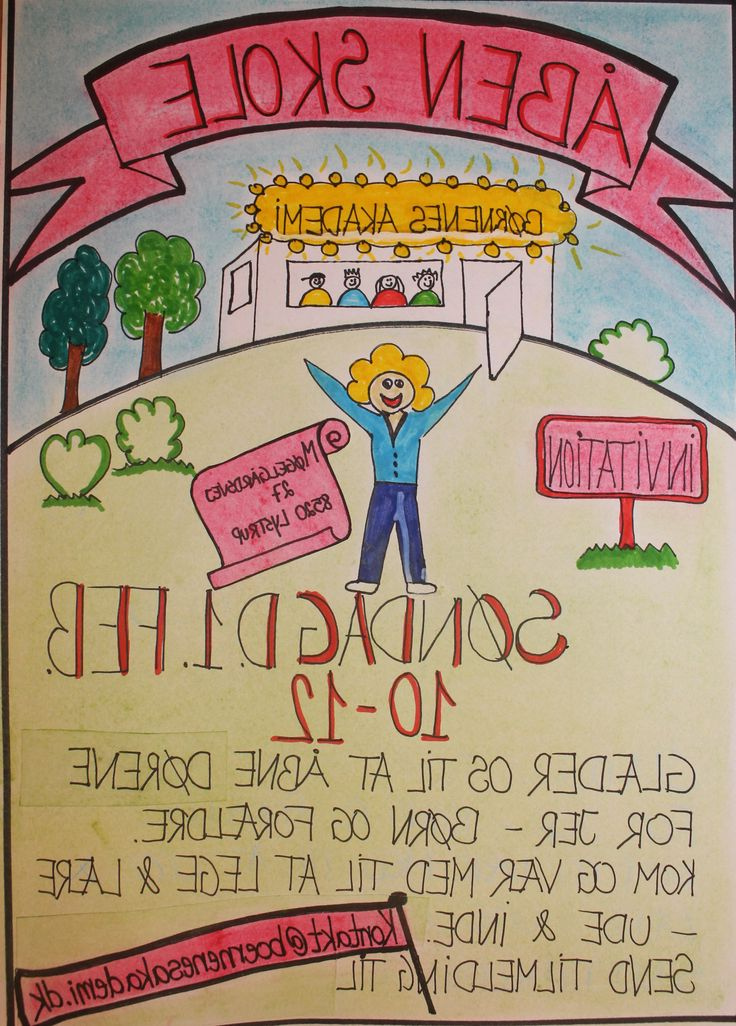 ÅBEN SKOLE
BØRNENES AKADEMI
INVITATION
MØGELGÅRDSVEJ
27
8520 LYSTRUP
SØNDAG D. 1. FEB.
10-12
GLÆDER OS TIL AT ÅBNE DØRENE
FOR JER - BØRN OG FORÆLDRE.
KOM OG VÆR MED TIL AT LEGE & LÆRE
- UDE & INDE.
SEND TILMELDING TIL
Kontakt@boernenesakademi.dk